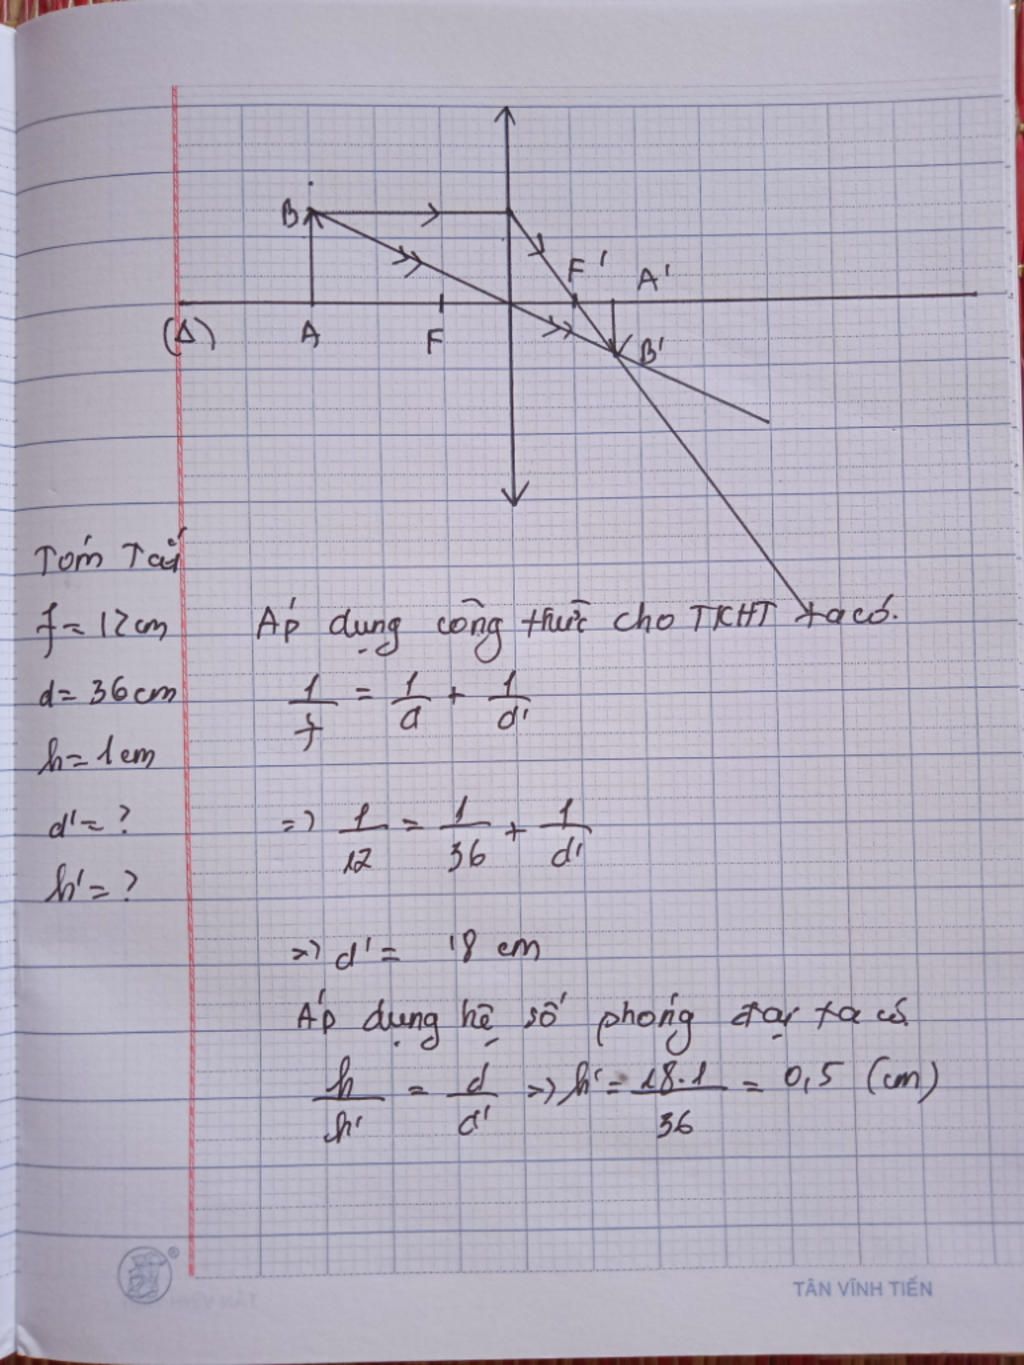 B
F'
A'
(Δ)
A
F
B'
Tóm Tắt
f = 12 cm
d = 36 cm
h = 1 cm
d' = ?
h' = ?
Áp dụng công thức cho TKHT ta có.
1/f = 1/d + 1/d'
=> 1/12 = 1/36 + 1/d'
=> d' = 18 cm
Áp dụng hệ số phóng đại ta có
h/h' = d/d' => h' = 18.1/36 = 0,5 (cm)
TÂN VĨNH TIẾN